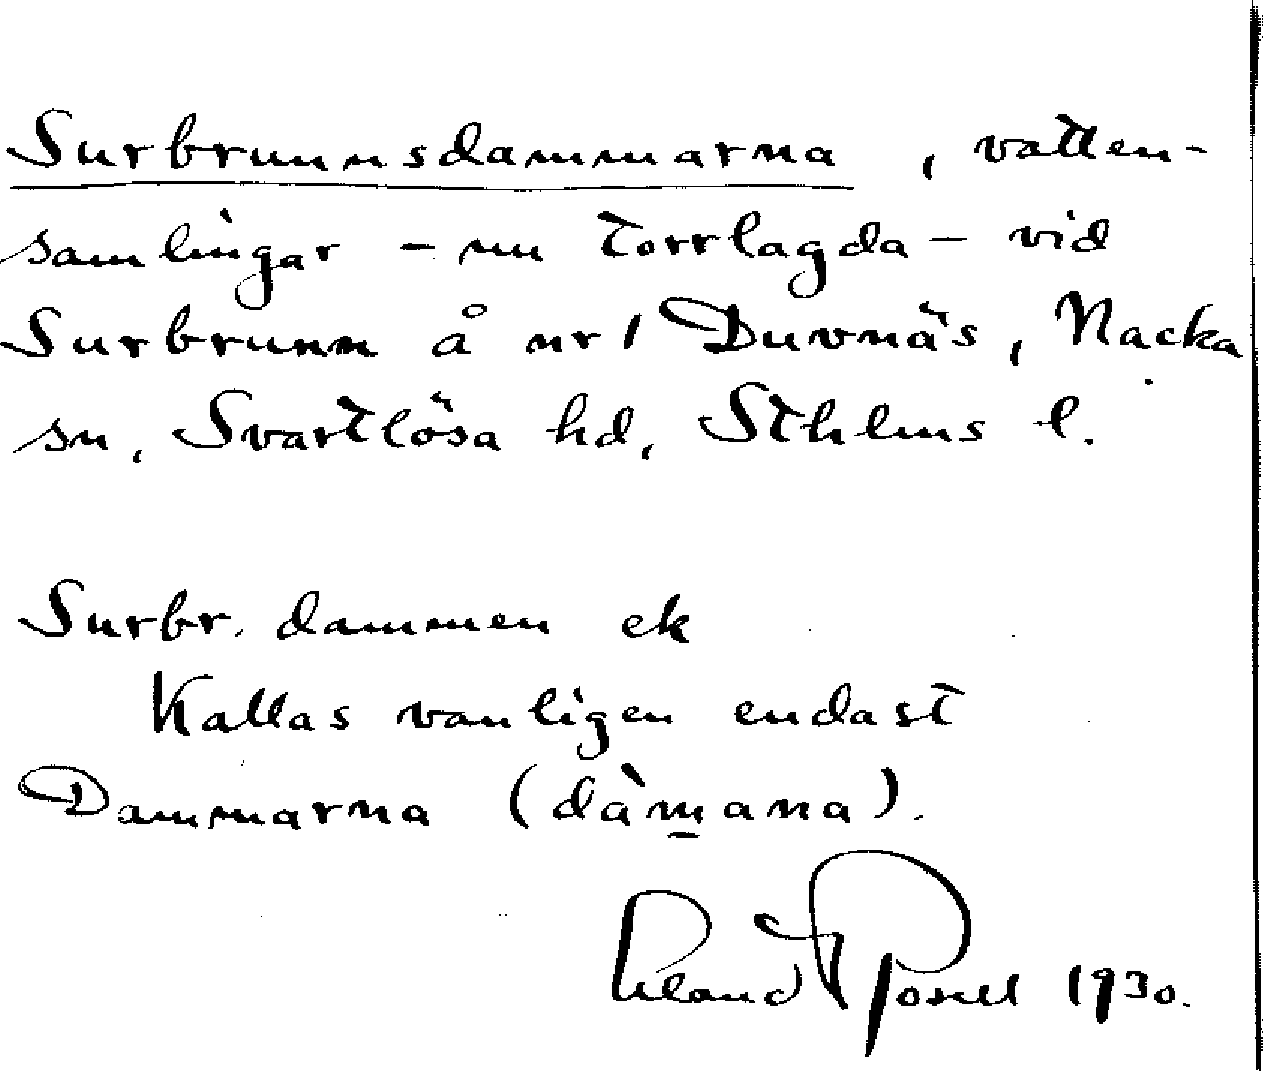 Surbrunnsdammarna, vatten-
samlingar - nu torrlagda - vid
Surbrunn å nr 1 Duvnäs, Nacka
sn, Svartlösa hd, Sthlms l.
Surbr. dammen ek
Kallas vanligen endast
Dammarna (dàm̲ana).
1930.